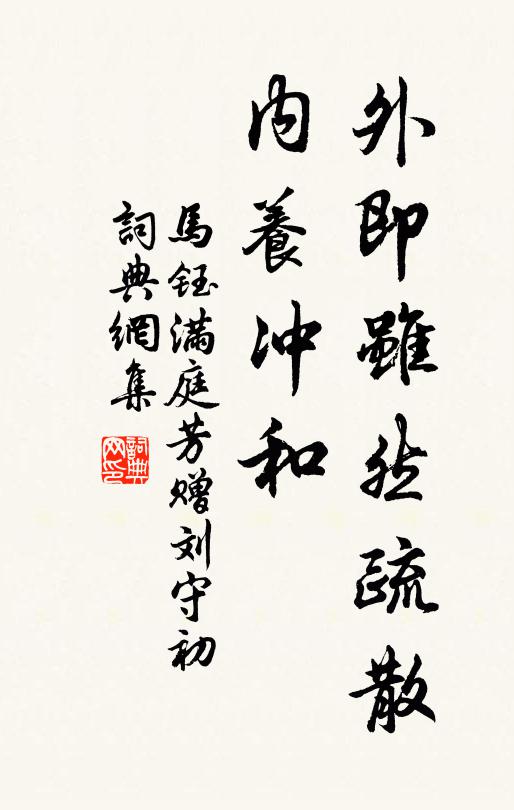 外即雖然疏散
内養冲和
馬鈺滿庭芳赠刘守初
詞典網集
詞典网印